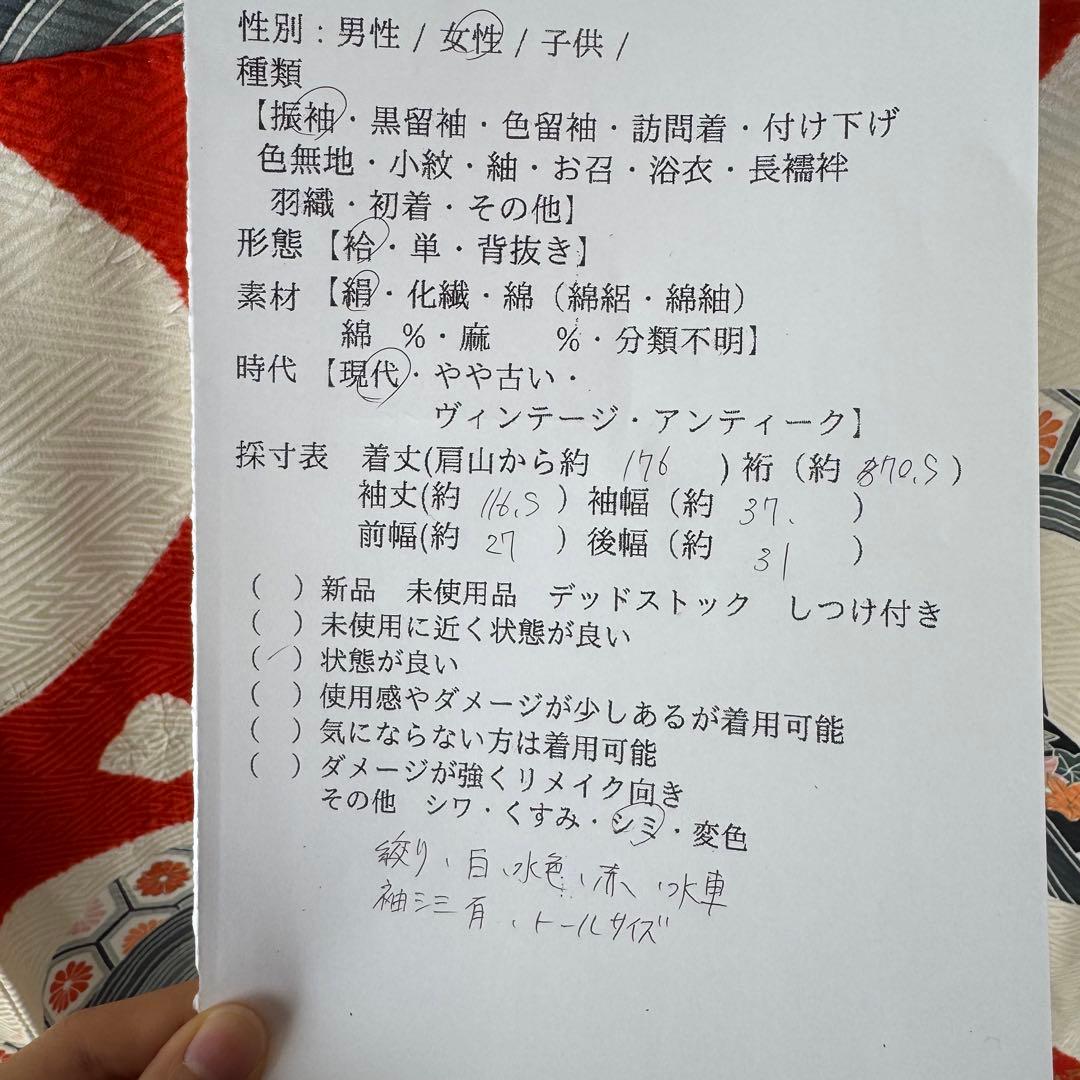 性別：男性 / 女性 / 子供 /
種類
【振袖・黒留袖・色留袖・訪問着・付け下げ
色無地・小紋・紬・お召・浴衣・長襦袢
羽織・初着・その他】
形態【袷・単・背抜き】
素材【絹・化繊・綿（綿絽・綿紬）
綿　%・麻　　%・分類不明】
時代【現代・やや古い・
ヴィンテージ・アンティーク】
採寸表　着丈(肩山から約　176　) 裄（約 70.5）
袖丈(約　116.5　）袖幅（約　37.　）
前幅(約　27　）後幅（約　31　）
（　）新品　未使用品　デッドストック　しつけ付き
（　）未使用に近く状態が良い
（✓）状態が良い
（　）使用感やダメージが少しあるが着用可能
（　）気にならない方は着用可能
（　）ダメージが強くリメイク向き
その他　シワ・くすみ・シミ・変色
絞り、白、水色、赤、水車
袖シミ有、トールサイズ